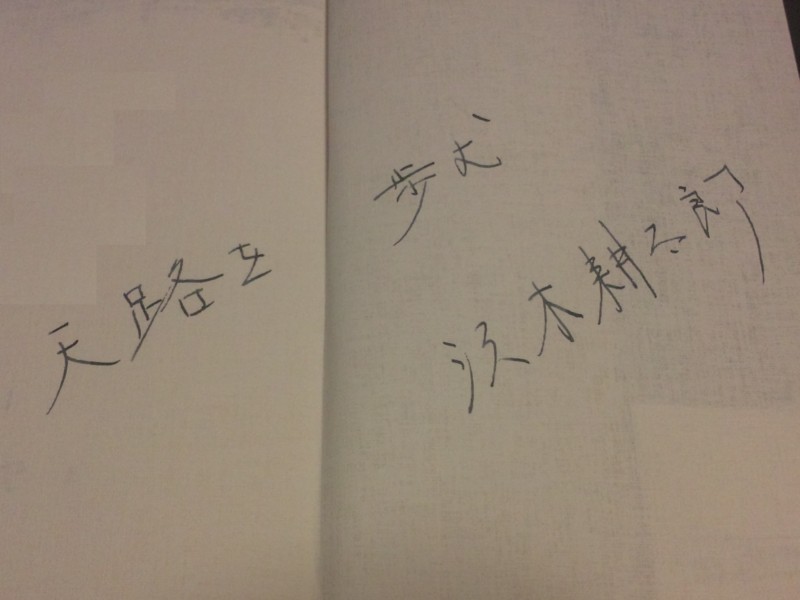 天路を
歩む
沢木耕太郎